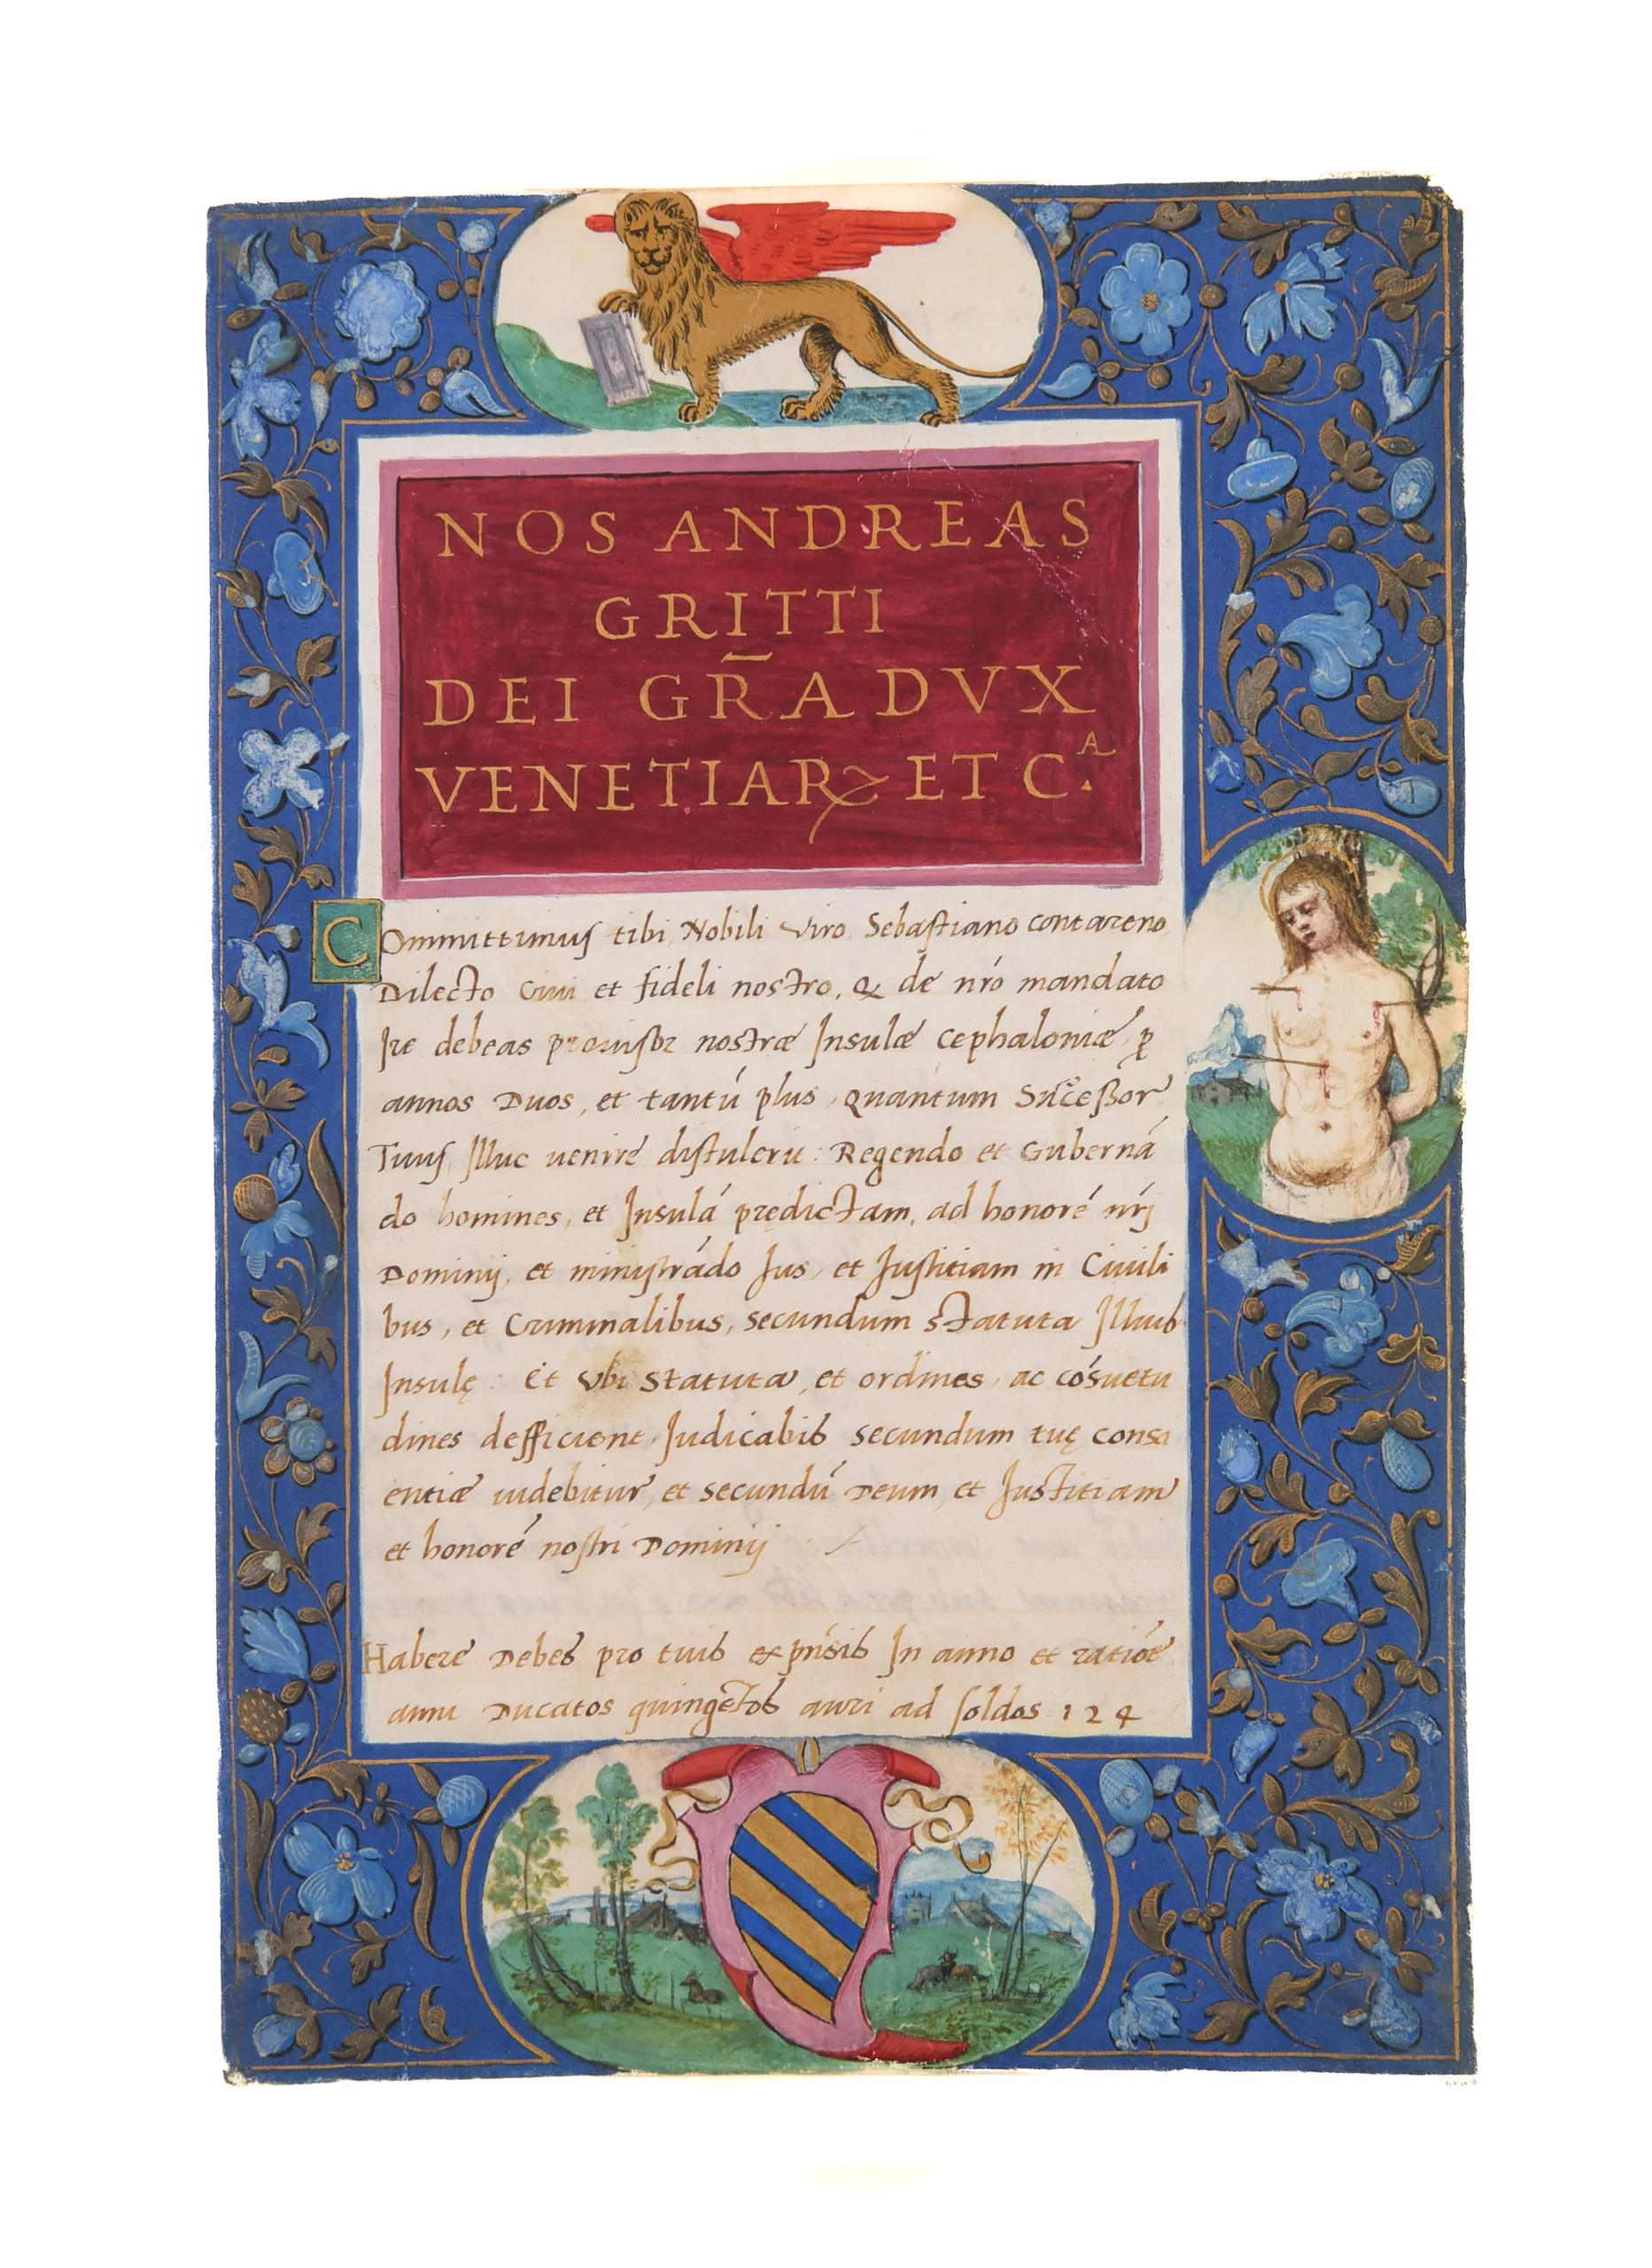 NOS ANDREAS
GRITTI
DEI GR̄A DVX
VENETIARꝜ ET C.ᴬ
Committimus tibi Nobili Viro Sebastiano contareno
Dilecto Ciui et fideli nostro, Q de nr̄o mandato
Ire debeas prouisor nostræ Insulæ Cephaloniæ ꝑ
annos Duos, et tantú plus, Quantum Successor
Tuus Illuc uenire distulerit: Regendo et Guberná
do homines, et Insulá prędictam, ad honoré nr̄j
Dominij, et ministrádo Jus, et Justitiam in Ciuili
bus, et Criminalibus, secundum statuta Illius
Insulę: Et Vbi Statuta, et ordines, ac cósuetu
dines defficient, Judicabis secundum tuę consci
entiæ uidebitur, et secundú Deum, et Justitiam
et honoré nostri Dominij
Habere Debes pro tuis expn̄sis In anno et ratióe
anni Ducatos quingētos auri ad soldos 124